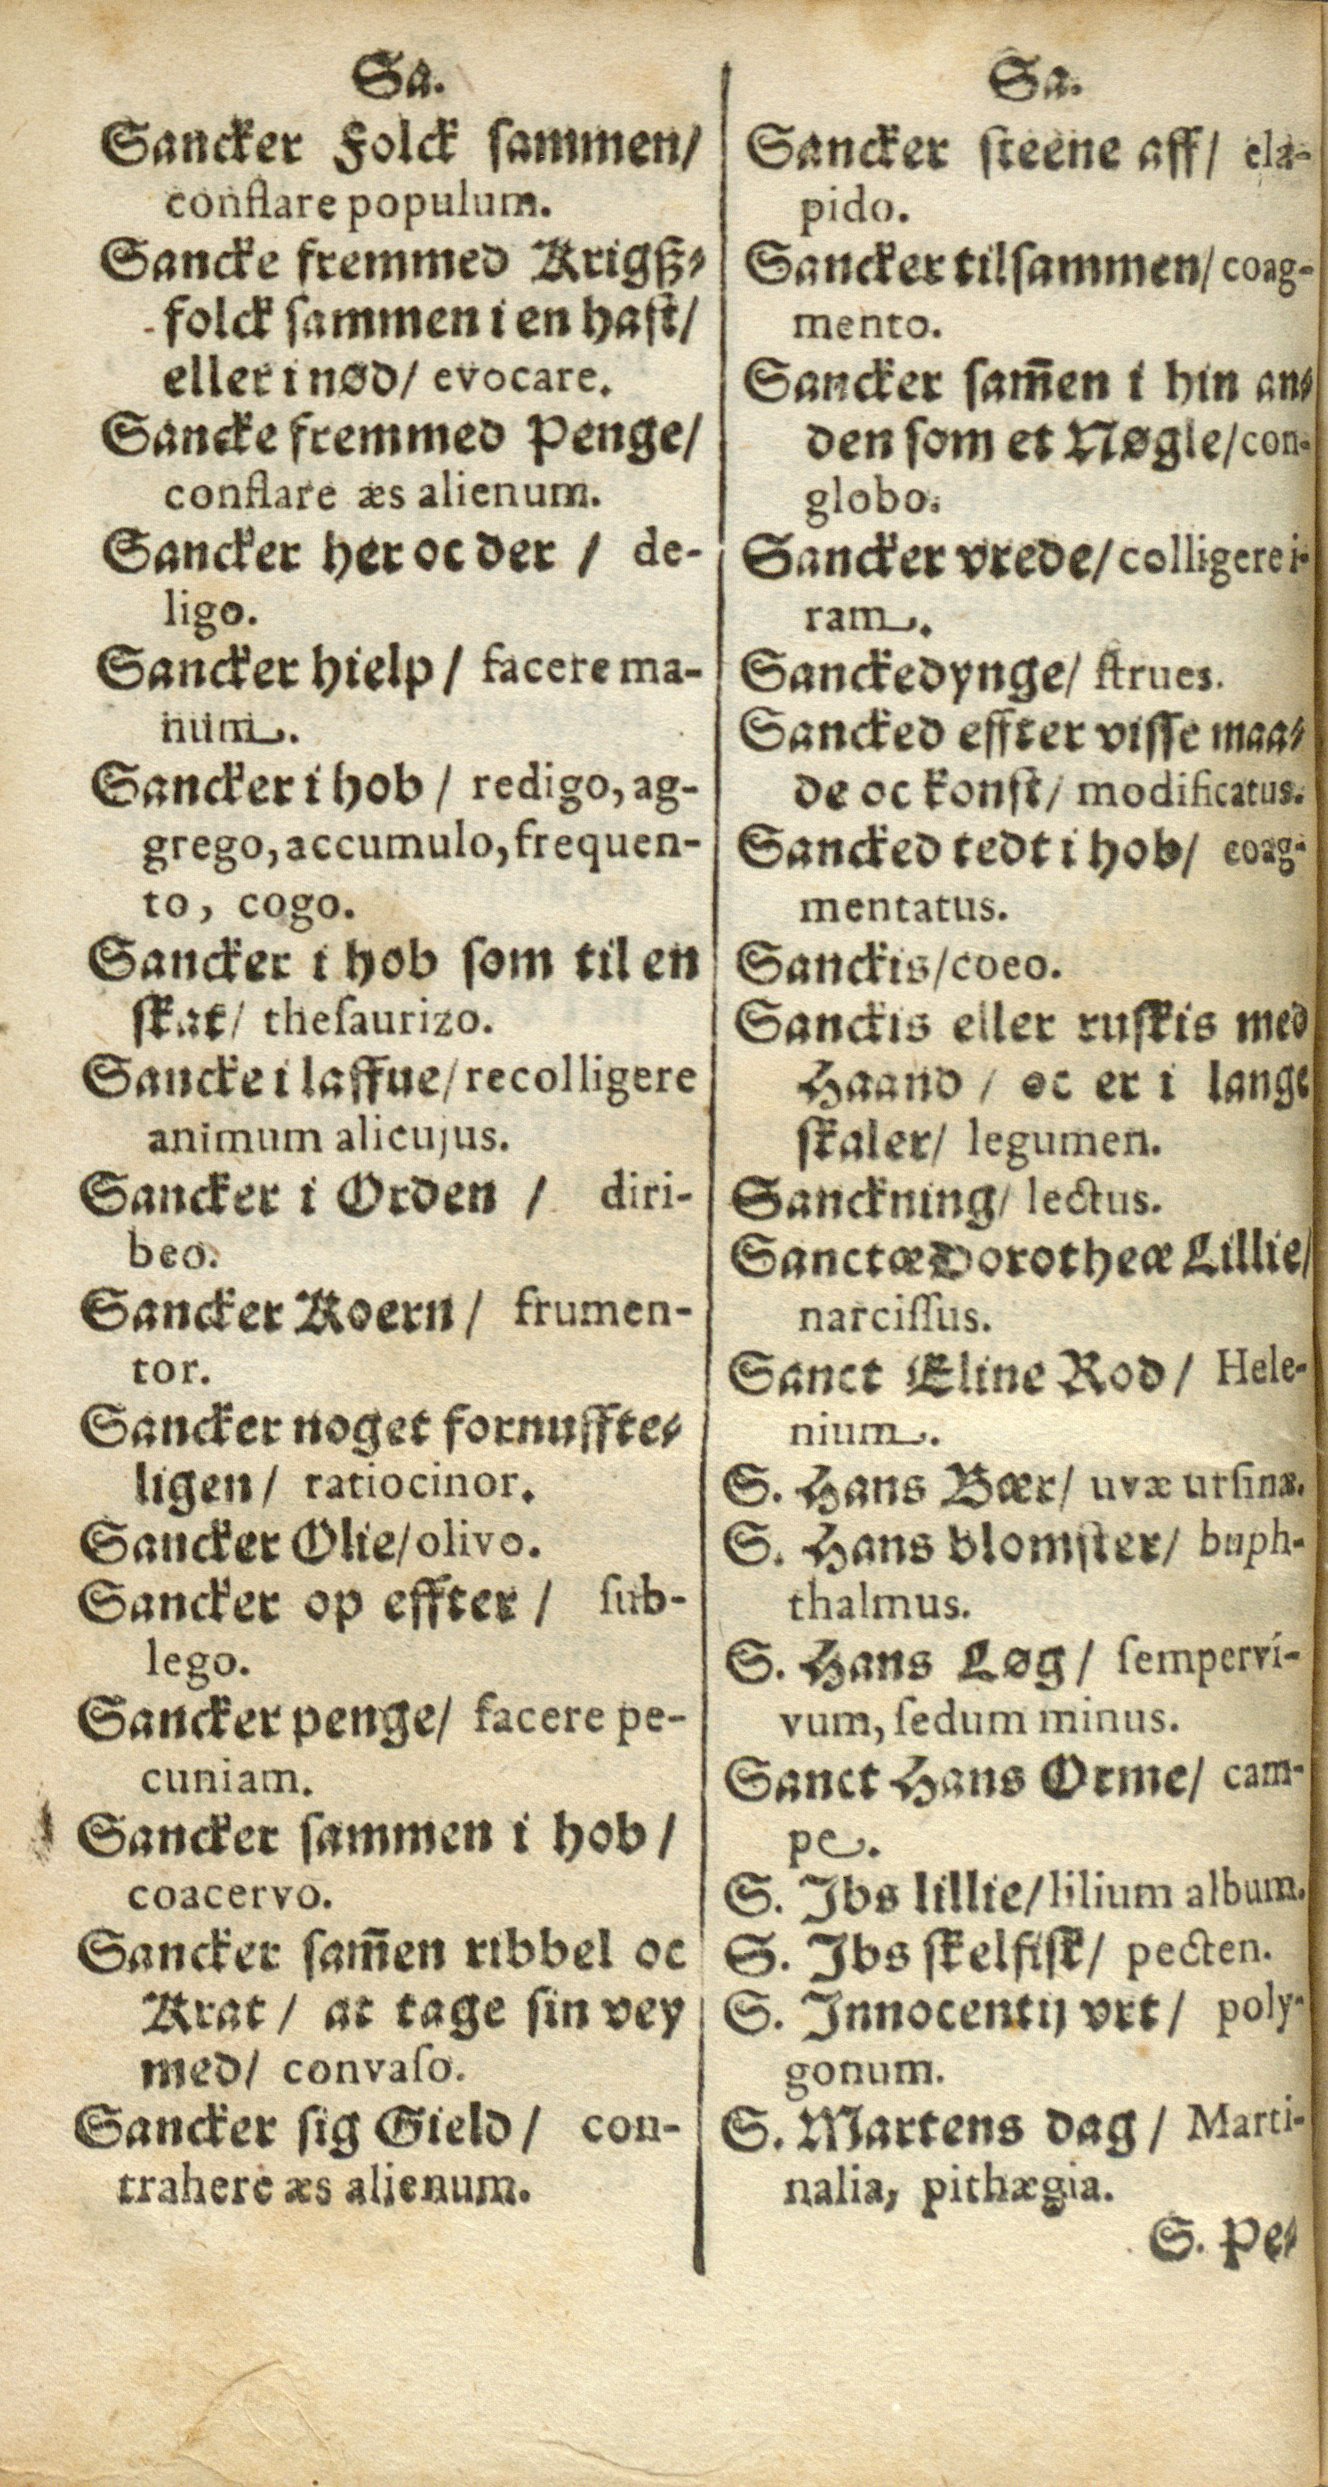 Sa.
Sancker Folck ſammen/
conflare populum.
Sancke fremmed Krigß⸗
folck ſammen i en haſt/
eller i nød/ evocare.
Sancke fremmed Penge/
conflare æs alienum.
Sancker her oc der / de-
ligo.
Sancker hielp / facere ma-
num.
Sancker i hob / redigo, ag-
grego, accumulo, frequen-
to, cogo.
Sancker i hob ſom til en
ſkat/ theſaurizo.
Sancke i laffue/ recolligere
animum alicujus.
Sancker i Orden / diri-
beo.
Sancker Koern / frumen-
tor.
Sancker noget fornuffte⸗
ligen / ratiocinor.
Sancker Olie/ olivo.
Sancker op effter / ſub-
lego.
Sancker penge/ facere pe-
cuniam.
Sancker ſammen i hob /
coacervo.
Sancker ſam̄en ribbel oc
Krat / at tage ſin vey
med/ convaſo.
Sancker ſig Gield / con-
trahere æs alienum.
Sa.
Sancker ſteene aff/ ela-
pido.
Sancker tilſammen/ coag-
mento.
Sancker ſam̄en i hin an⸗
den ſom et Nøgle/ con-
globo.
Sancker vrede/ colligere i-
ram.
Sanckedynge/ ſtrues.
Sancked effter viſſe maa⸗
de oc konſt/ modificatus.
Sancked tedt i hob/ coag-
mentatus.
Sanckis/ coeo.
Sanckis eller ruſkis med
Haand / oc er i lange
ſkaler/ legumen.
Sanckning/ lectus.
Sanctæ Dorotheæ Lillie/
narciſſus.
Sanct Eline Rod / Hele-
nium.
S. Hans Bær/ uvæ urſinæ.
S. Hans blomſter/ buph-
thalmus.
S. Hans Løg / ſempervi-
vum, ſedum minus.
Sanct Hans Orme/ cam-
pe.
S. Ibs lillie/ lilium album.
S. Ibs ſkelfiſk/ pecten.
S. Innocentij vrt / poly-
gonum.
S. Martens dag / Marti-
nalia, pithægia.
S. Pe⸗